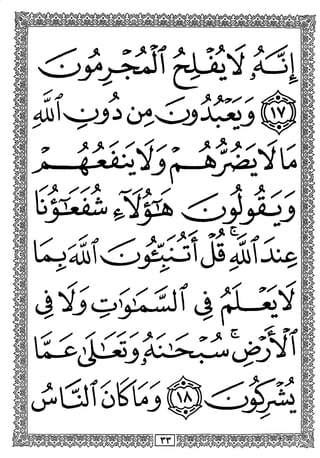 إِنَّهُۥ لَا يُفْلِحُ ٱلْمُجْرِمُونَ
﴿١٧﴾ وَيَعْبُدُونَ مِن دُونِ ٱللَّهِ
مَا لَا يَضُرُّهُمْ وَلَا يَنفَعُهُمْ
وَيَقُولُونَ هَٰٓؤُلَآءِ شُفَعَٰٓؤُنَا
عِندَ ٱللَّهِ ۚ قُلْ أَتُنَبِّـُٔونَ ٱللَّهَ بِمَا
لَا يَعْلَمُ فِى ٱلسَّمَٰوَٰتِ وَلَا فِى
ٱلْأَرْضِ ۚ سُبْحَٰنَهُۥ وَتَعَٰلَىٰ عَمَّا
يُشْرِكُونَ ﴿١٨﴾ وَمَا كَانَ ٱلنَّاسُ
٣٣